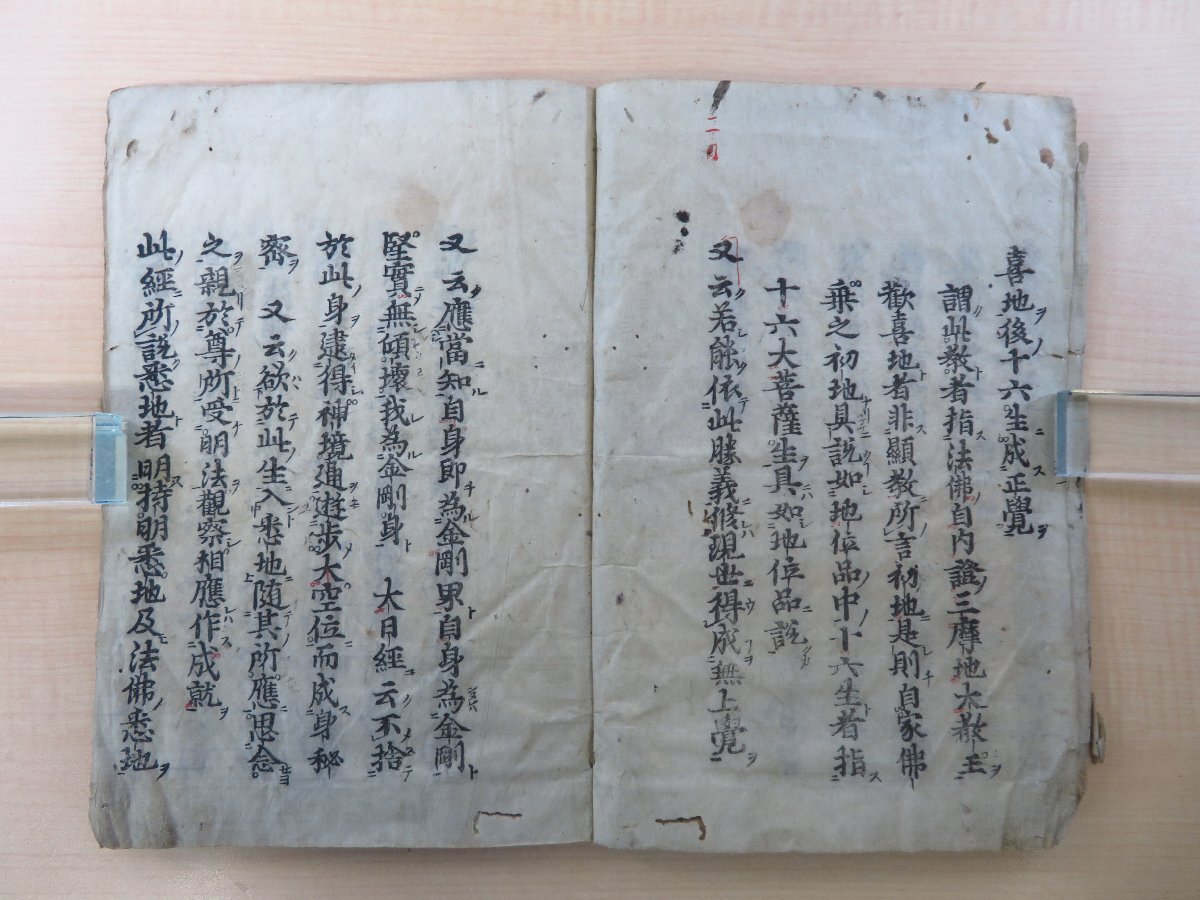 喜地後十六生成正覺
謂此教者指法佛自内證三摩地大教王
歡喜地者非顯教所言初地是則自家佛
乗之初地具說如地位品中十六生者指
十六大菩薩生具如地位品說
又云若能依此勝義修現世得成無上覺
又云應當知自身即為金剛界自身為金剛
堅實無傾壞我為金剛身 大日經云不捨
於此身逮得神境通遊步大空位而成身秘
密 又云欲於此生入悉地随其所應思念
之親於尊所受明法觀察相應作成就
此經所說悉地者明持明悉地及法佛悉地